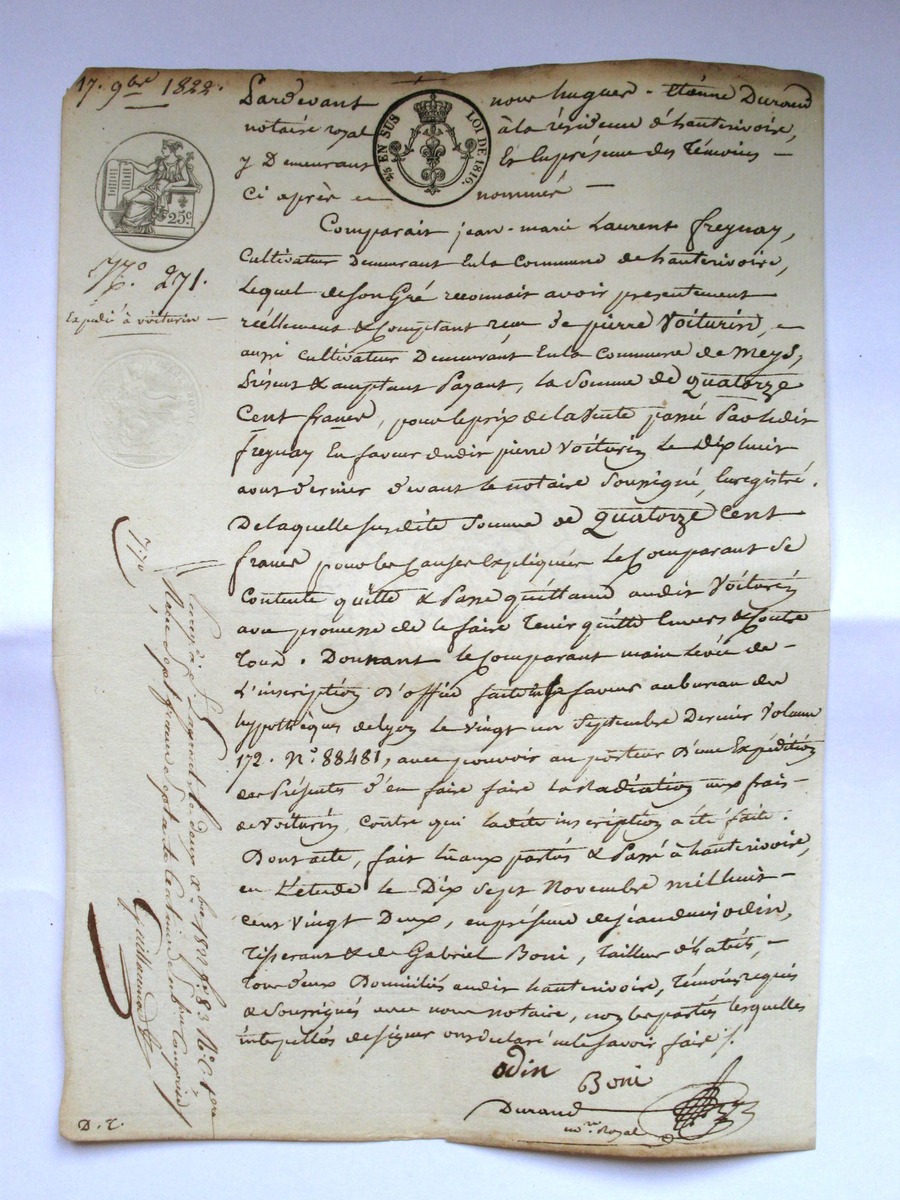 17. 9bre 1822.
Pardevant nous hugues - Etienne Durand
notaire royal à la résidence d'hauterivoire,
y Demeurant Et En présence des Témoins -
Ci après en nommés -
¼ EN SUS LOI DE 1816.
25c
N.o 271.
Expédié à voiturin -
Comparait jean-marie Laurent freynay,
Cultivateur Demeurant En la Commune de hauterivoire,
Lequel de Son Gré reconnait avoir présentement
réellement & Comptant reçu de pierre Voiturin,
aussi Cultivateur Demeurant En la Commune de Meys,
Présent & acceptant Payant, la Somme de quatorze
Cent francs, pour le prix de la Vente passé Par ledit
freynay En faveur dudit pierre Voiturin Le Dix huit
aout dernier devant le notaire Soussigné, Enregistré.
De laquelle Susdite Somme de quatorze Cent
francs pour les Causes Expliquées Le Comparant Se
Contente quitte & Passe quittance audit Voiturin
avec promesse de le faire Tenir quitte Envers & Contre
Tous. Donnant le Comparant main levée de -
L'inscription D'office faite en Sa faveur au bureau des
hypothèques de Lyon Le Vingt un Septembre Dernier Volume
172. N.o 88481, avec pouvoir au porteur D'une Expédition
des Présentes d'en faire faire La Radiation aux frais -
de Voiturin, Contre qui ladite inscription a été faite.
Dont acte, fait Lu aux parties & Passé à hauterivoire,
en L'étude le Dix Sept Novembre mil huit -
cent Vingt Deux, en présence de jean denis odin,
Tisserant & de Gabriel Boni, Tailleur d'habits, -
Tous deux Domiciliés audit hauterivoire, Témoins requis
& Soussignés avec nous notaire, non les parties lesquelles
interpellées de signer ont déclaré ne le Savoir faire /.
odin
Boni
Durand
Royal
7.70
Laurent le deux Xbre 1822 f.o 83
Reçu Sept francs Septante Centimes
D. T.